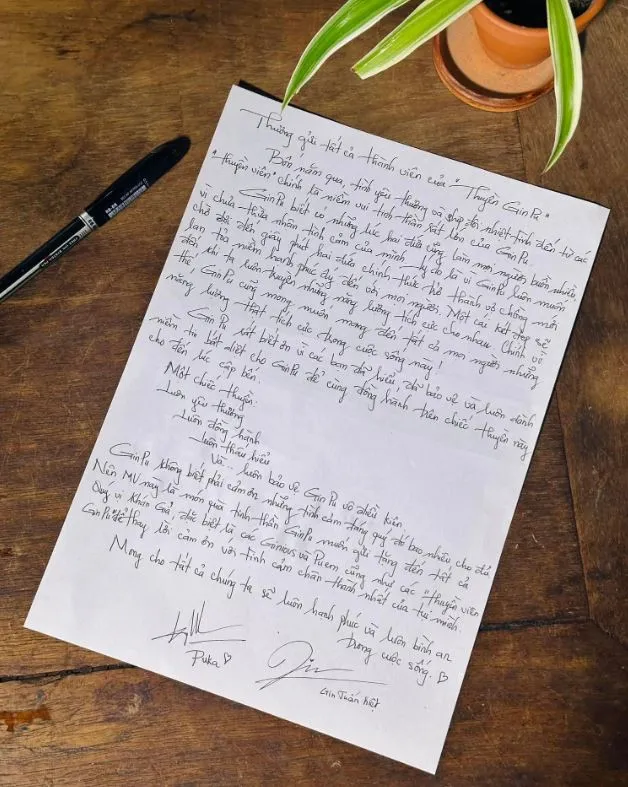 Thương gửi tất cả thành viên của "Thuyền GinPu"
Bốn năm qua, tình yêu thương và giúp đỡ nhiệt tình đến từ các
"thuyền viên" chính là niềm vui tinh thần rất lớn của GinPu.
GinPu biết có những lúc hai đứa cũng làm mọi người buồn nhiều
vì chưa thừa nhận tình cảm của mình. Lý do là vì GinPu luôn muốn
chờ đợi đến giây phút hai đứa chính thức trở thành vợ chồng mới
lan tỏa niềm hạnh phúc ấy đến với mọi người. Một cái kết đẹp sẽ
đến khi ta luôn truyền những năng lượng tích cực cho nhau. Chính vì
thế, GinPu cũng mong muốn mang đến tất cả mọi người những
năng lượng thật tích cực trong cuộc sống này!
GinPu rất biết ơn vì các bạn đã hiểu, đã bảo vệ và luôn dành
niềm tin bất diệt cho GinPu để cùng đồng hành trên chiếc thuyền này
cho đến lúc cập bến.
Một chiếc thuyền:
Luôn yêu thương
Luôn đồng hành
Luôn thấu hiểu
Và... luôn bảo vệ GinPu vô điều kiện.
GinPu không biết phải cảm ơn những tình cảm đáng quý đó bao nhiêu cho đủ
Nên MV này là món quà tinh thần GinPu muốn gửi tặng đến tất cả
Quý vị Khán Giả, đặc biệt là các Ginious và Puem cũng như các "thuyền viên
GinPu" để thay lời cảm ơn với tình cảm chân thành nhất của tụi mình.
Mong cho tất cả chúng ta sẽ luôn hạnh phúc và luôn bình an
trong cuộc sống. ♡
Puka ♡
Gin Tuấn Kiệt